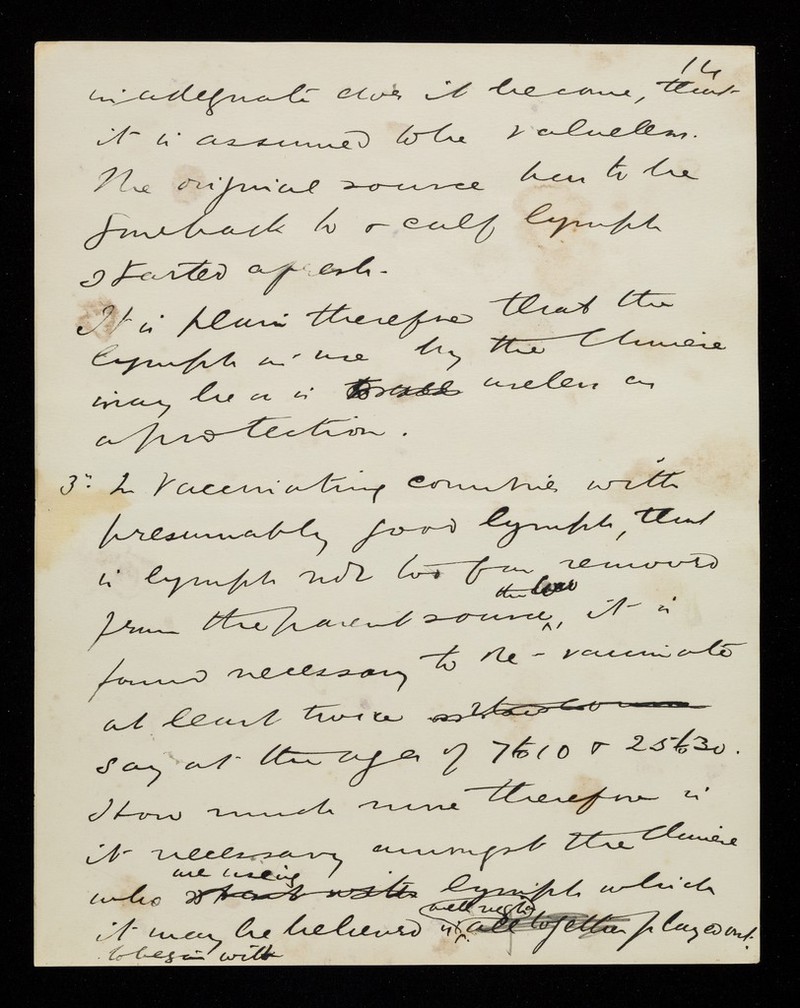 14
inadequate does it become, that
it is assumed to be valueless.
The original source has to be
gone back to & calf lymph
started afresh.
It is plain therefore that the
lymph in use by the Chinese
may be or is useless as
a protection.
3. In vaccinating countries with
presumably good lymph, that
is lymph not too far removed
from the parent source, the cow, it is
found necessary to re-vaccinate
at least twice
say at the ages of 7 to 10 & 25 to 30.
How much more therefore is
it necessary amongst the Chinese
who are using lymph which
it may be believed is well nigh all together played out.
to begin with